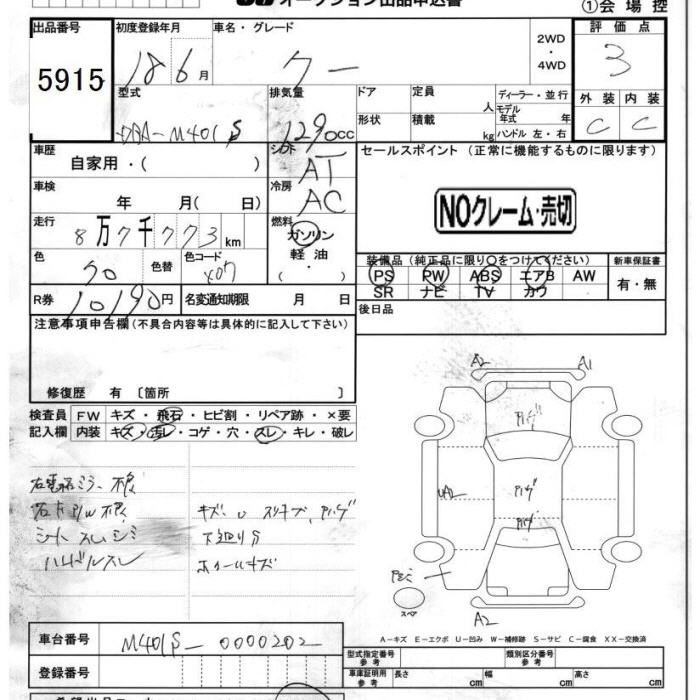 オークション出品申込書
①会場控
出品番号 初度登録年月 車名・グレード 評価点
5915 18 6月 クー 2WD・4WD 3
型式 排気量 ドア 定員 人 ディーラー・並行 外装 内装
DBA-M401S 1290cc 形状 積載 kg モデル年式 年 ハンドル 左・右 C C
車歴 シフト セールスポイント (正常に機能するものに限ります)
自家用・( ) AT
車検 冷房 NOクレーム・売切
年 月( 日) AC
走行 燃料
8万7千773km ガソリン・軽油( ・ )
色 色替 色コード 装備品(純正品に限り○をつけてください) 新車保証書
クロ X07 PS PW ABS エアB AW 有・無
SR ナビ TV カワ
R券 10190円 名変通知期限 月 日 後日品
注意事項申告欄(不具合内容等は具体的に記入して下さい)
修復歴 有 〔箇所 〕
検査員 FW キズ・飛石・ヒビ割・リペア跡・×要
記入欄 内装 キズ・汚レ・コゲ・穴・スレ・キレ・破レ
右電格ミラー不良
P/W不良 キズ
シートスレシミ 下廻りサ
ハンドルスレ ホイールキズ
A2 A1
UA2
A2
スペア
A-キズ E-エクボ U-凹み W-補修跡 S-サビ C-腐食 XX-交換済
車台番号 M401S-0000202
型式指定番号 参考 類別区分番号 参考
登録番号 車庫証明用 参考 長さ cm 幅 cm 高さ cm